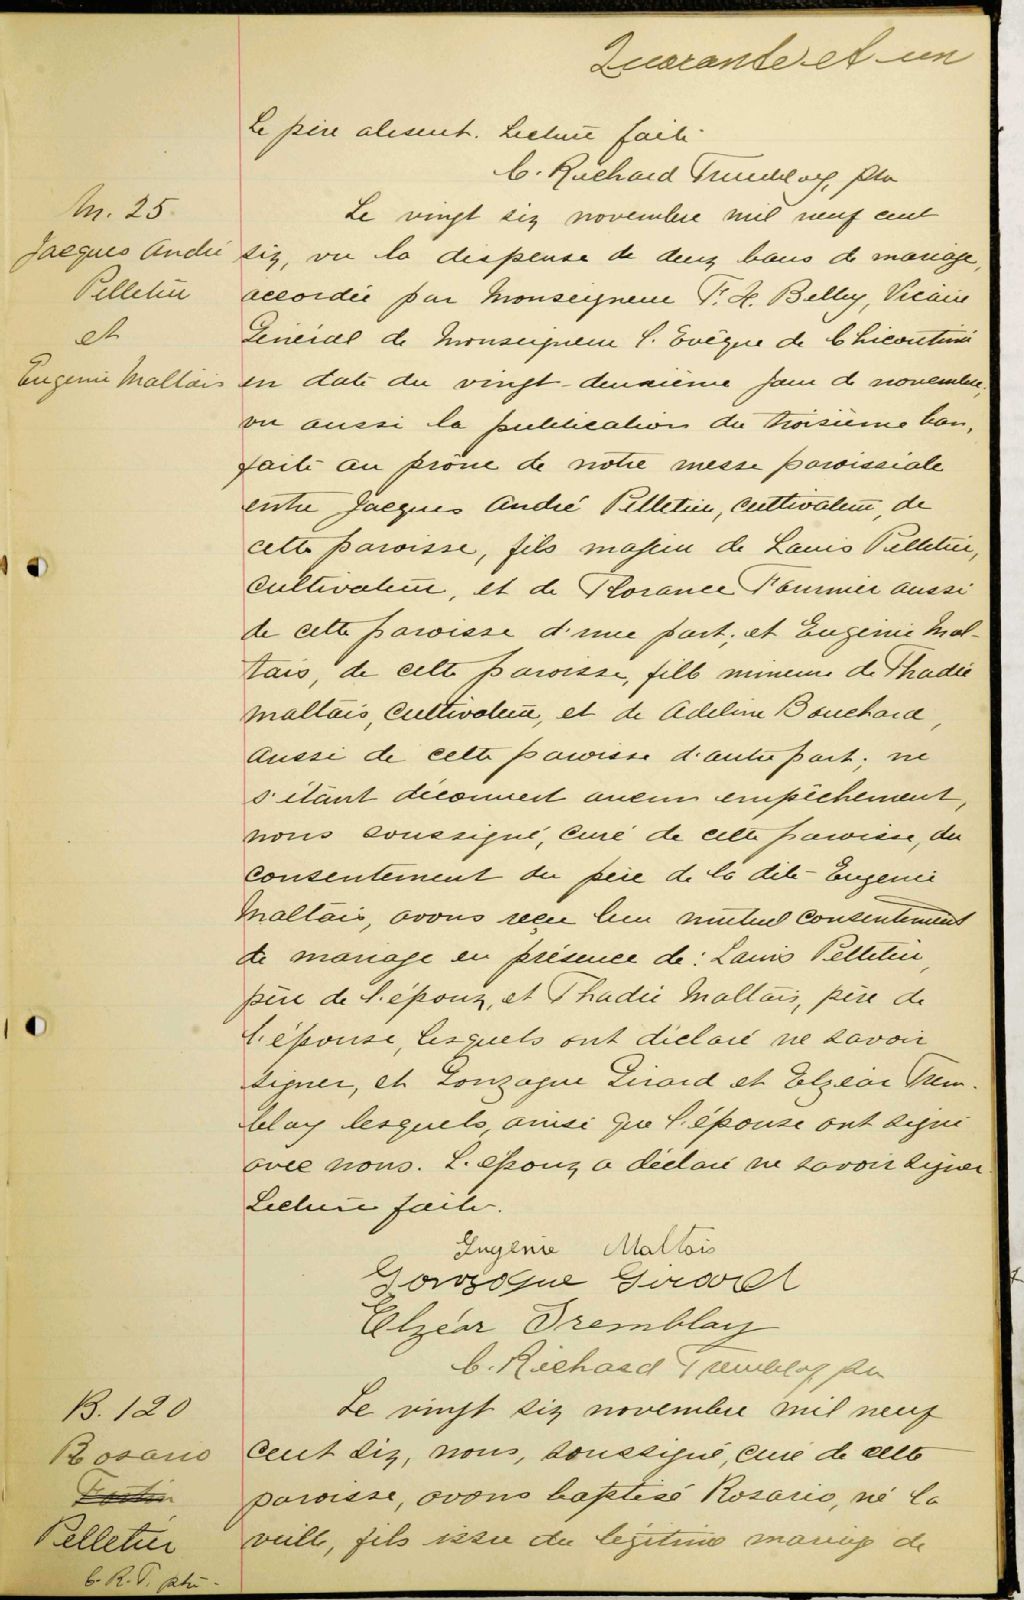 Quarante et un
Le père absent. Lecture faite.
C. Richard Tremblay, ptre
M. 25
Jacques André
Pelletier
et
Eugenie Maltais
Le vingt six novembre mil neuf cent
six, vu la dispense de deux bans de mariage,
accordée par Monseigneur F. X. Belley, Vicaire
Général de Monseigneur l'Evêque de Chicoutimi
en date du vingt-deuxième jour de novembre;
vu aussi la publication du troisième ban,
faite au prône de notre messe paroissiale
entre Jacques André Pelletier, cultivateur, de
cette paroisse, fils majeur de Louis Pelletier,
cultivateur, et de Florance Fournier aussi
de cette paroisse d'une part; et Eugénie Mal-
tais, de cette paroisse, fille mineure de Thadée
Maltais, cultivateur, et de Adeline Bouchard,
aussi de cette paroisse d'autre part; ne
s'étant découvert aucun empêchement,
nous soussigné, curé de cette paroisse, du
consentement du père de la dite Eugenie
Maltais, avons reçu leur mutuel consentement
de mariage en présence de: Louis Pelletier,
père de l'époux, et Thadée Maltais, père de
l'épouse, lesquels ont déclaré ne savoir
signer, et Gonzague Girard et Elzéar Trem-
blay lesquels, ainsi que l'épouse ont signé
avec nous. L'époux a déclaré ne savoir signer.
Lecture faite.
Eugenie Maltais
Gonzague Girard
Elzéar Tremblay
C. Richard Tremblay, ptre
B. 120
Rosario
Fortin
Pelletier
C. R. T. ptre.
Le vingt six novembre mil neuf
cent six, nous, soussigné, curé de cette
paroisse, avons baptisé Rosario, né la
veille, fils issu du légitime mariage de